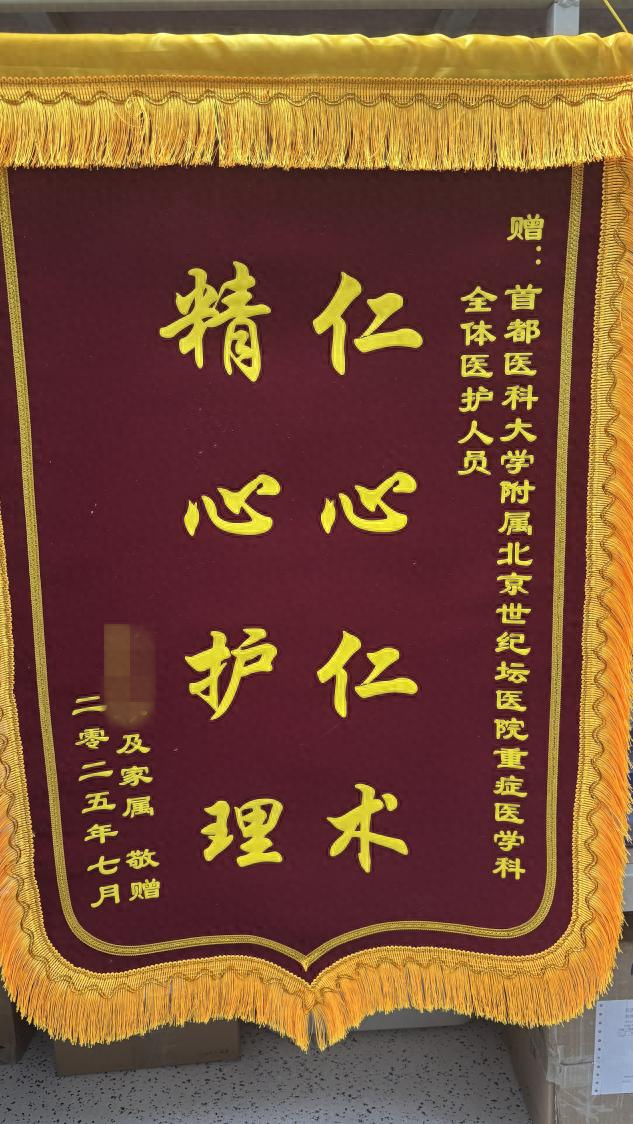 赠：首都医科大学附属北京世纪坛医院重症医学科
全体医护人员
仁心仁术
精心护理
及家属 敬赠
二零二五年七月